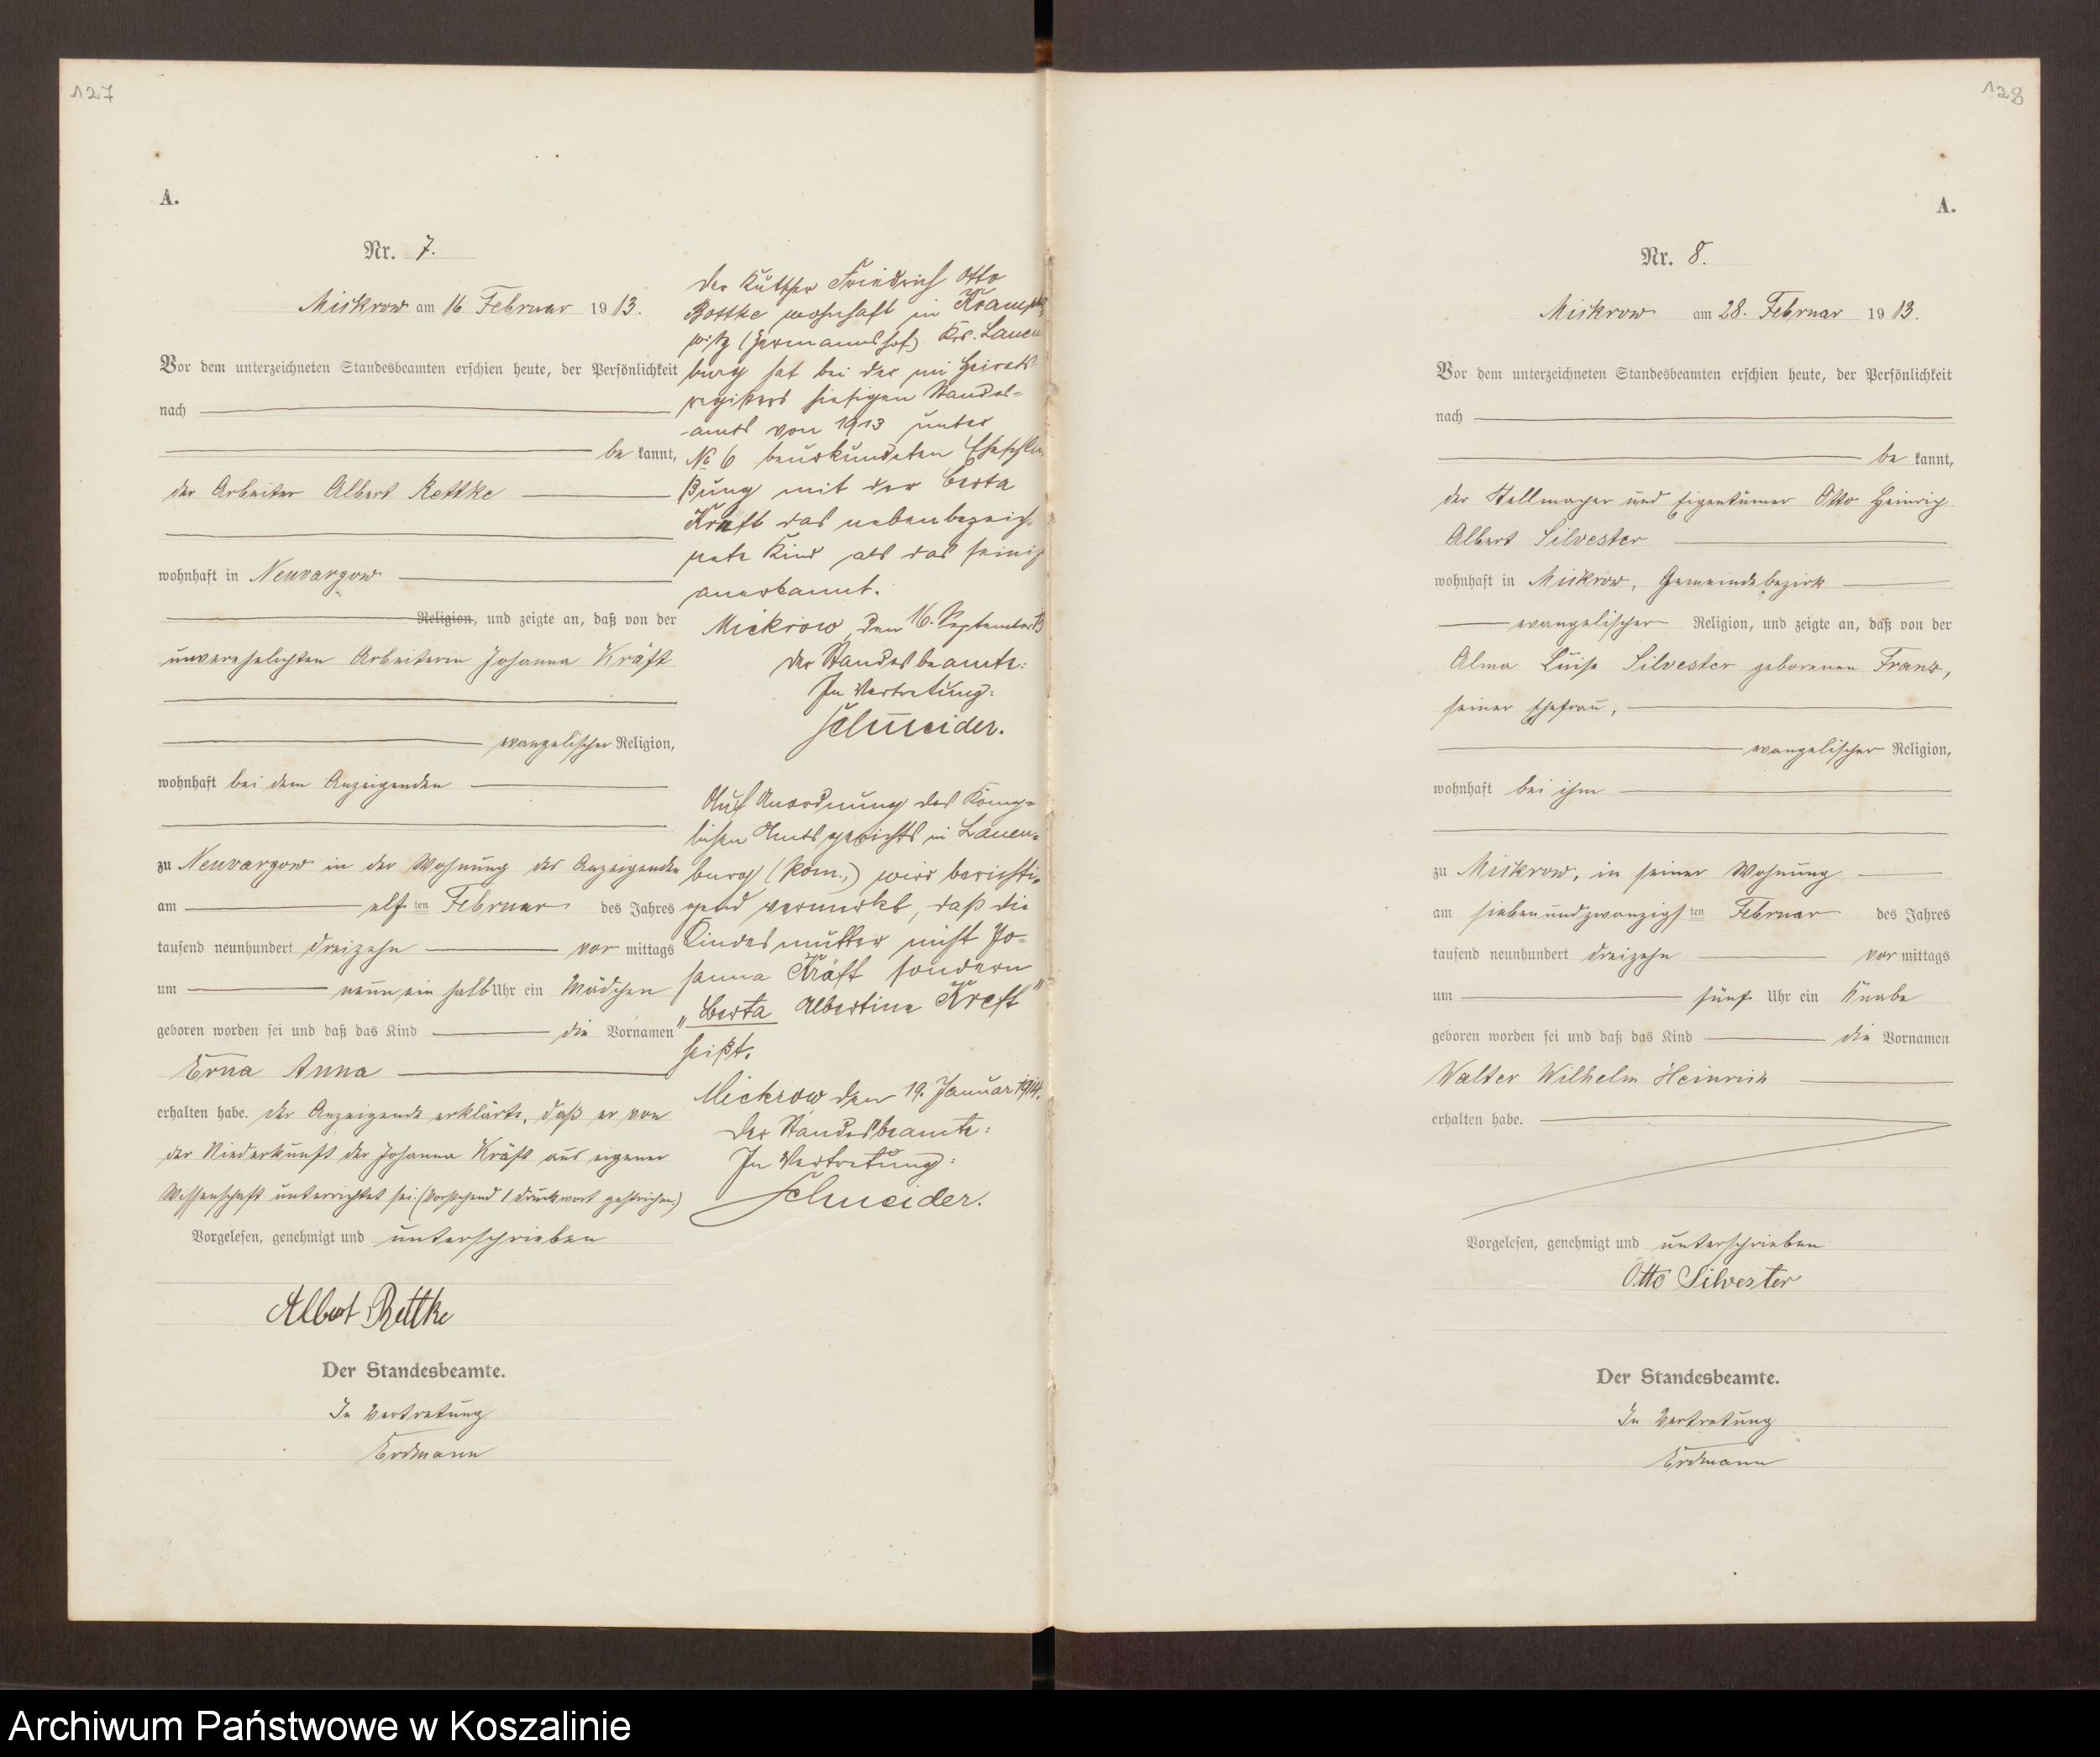 127
A.
Nr. 7.
Mickrow am 16. Februar 1913.
Vor dem unterzeichneten Standesbeamten erschien heute, der Persönlichkeit
nach
be kannt,
der Arbeiter Albert Rettke
wohnhaft in Neuvargow
Religion, und zeigte an, daß von der
unverehelichten Arbeiterin Johanna Kräft
evangelischer Religion,
wohnhaft bei dem Anzeigenden
zu Neuvargow in der Wohnung des Anzeigenden
am elf ten Februar des Jahres
tausend neunhundert dreizehn vor mittags
um neun ein halb Uhr ein Mädchen
geboren worden sei und daß das Kind die Vornamen
Erna Anna
erhalten habe. Der Anzeigende erklärte, daß er von
der Niederkunft der Johanna Kräft aus eigener
Wissenschaft unterrichtet sei. (Vorstehend 1 Druckwort gestrichen)
Vorgelesen, genehmigt und unterschrieben
Albert Rettke
Der Standesbeamte.
In Vertretung
Erdmann
Der Kutscher Friedrich Otto
wohnhaft in
(Hermannshof) Krs. Lauen
burg hat bei der im Heirats-
registers hiesigen Standes-
-amts von 1913 unter
No 6 beurkundeten Eheschlie
ßung mit der Berta
Kreft das nebenbezeich-
nete Kind als das seinig
anerkannt.
Mickrow, den 16. September 13
Der Standesbeamte:
In Vertretung:
Schneider.
Auf Anordnung des König-
lichen Amtsgerichts in Lauen-
burg (Pom.) wird berichti-
gend vermerkt, daß die
Kindesmutter nicht Jo-
hanna Kräft sondern
„Berta Albertine Kreft"
heißt.
Mickrow den 19. Januar 1914.
Der Standesbeamte:
In Vertretung:
Schneider.
128
A.
Nr. 8.
Mickrow am 28. Februar 1913.
Vor dem unterzeichneten Standesbeamten erschien heute, der Persönlichkeit
nach
be kannt,
der Stellmacher und Eigentümer Otto Heinrich
Albert Silvester
wohnhaft in Mickrow, Gemeindebezirk
evangelischer Religion, und zeigte an, daß von der
Alma Luise Silvester geborenen Franz,
seiner Ehefrau,
evangelischer Religion,
wohnhaft bei ihm
zu Mickrow, in seiner Wohnung
am siebenundzwanzigs ten Februar des Jahres
tausend neunhundert dreizehn vor mittags
um fünf Uhr ein Knabe
geboren worden sei und daß das Kind die Vornamen
Walter Wilhelm Heinrich
erhalten habe.
Vorgelesen, genehmigt und unterschrieben
Otto Silvester
Der Standesbeamte.
In Vertretung
Erdmann
Archiwum Państwowe w Koszalinie